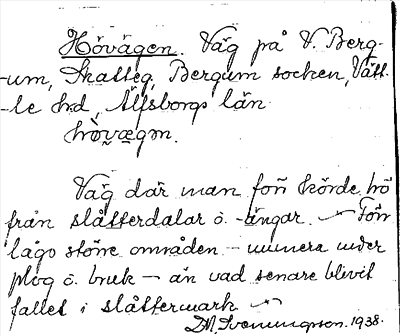 Hövägen. Väg på V. Berg-
-um, Skatteg, Bergum socken, Vätt-
-le hd, Älfsborgs län.
hö̀vægɷn.
Väg där man förr körde hö
från slåtterdalar o. -ängar. — Förr
lågo större områden – numera under
plog o. bruk – än vad senare blivit
fallet i slåttermark —
Svenningson. 1938.